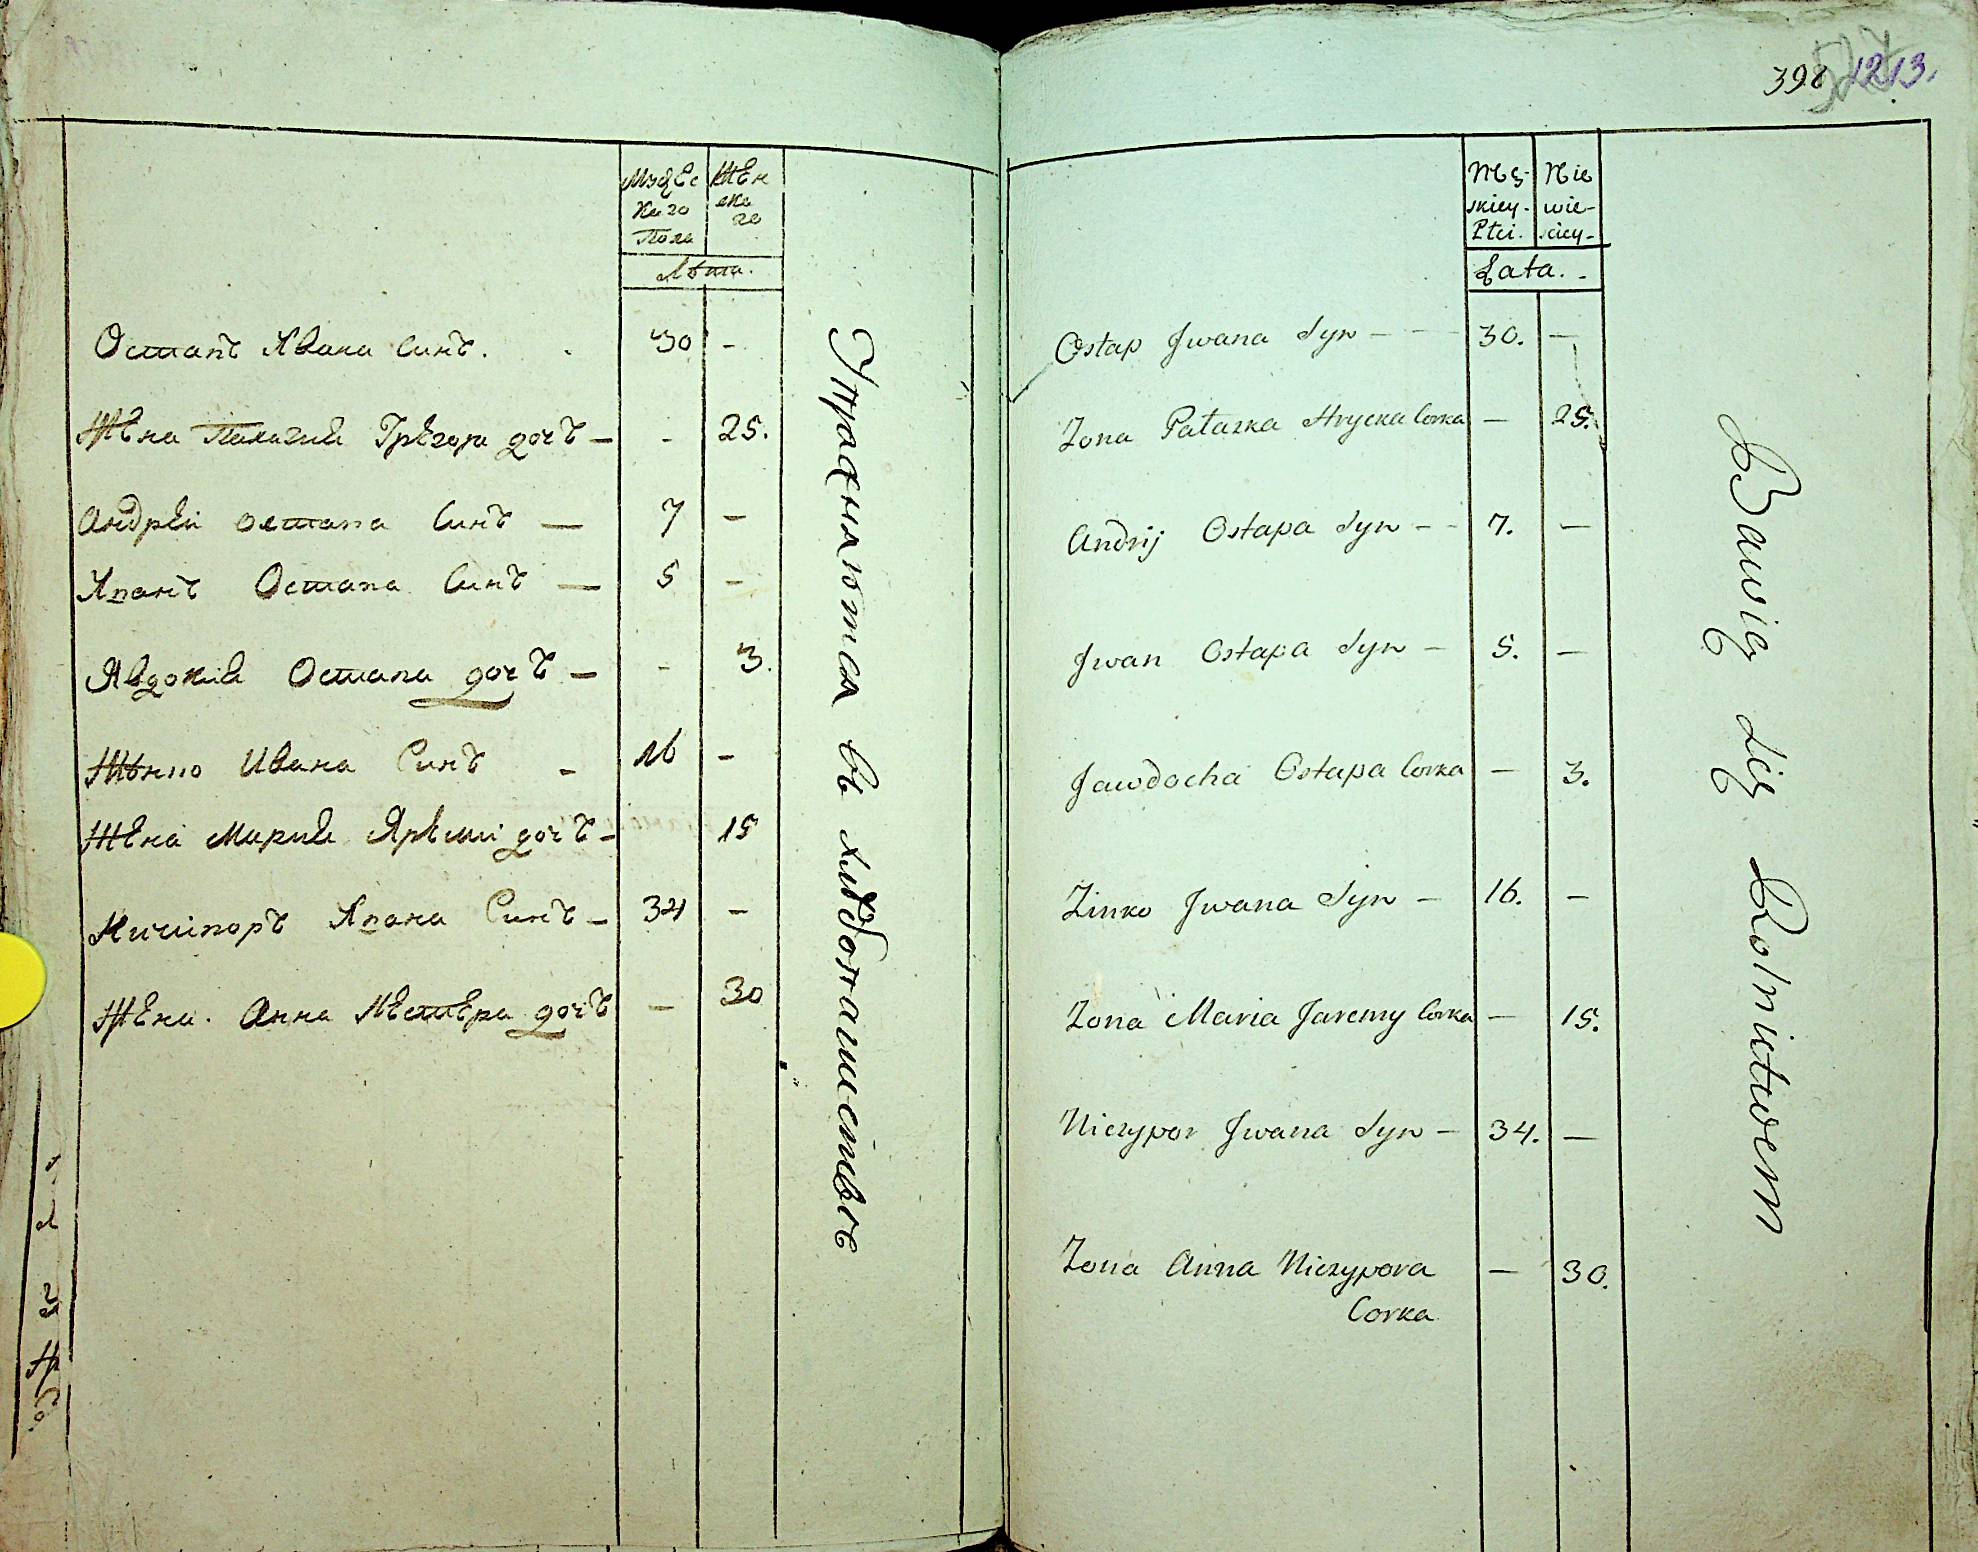 Мужес
каго
Пола
Жен
ска
го
Лѣта.
Остапъ Ивана синъ. 30 -
Жена Палагия Грегора дочъ - - 25.
Андрей остапа Синъ — 7 -
Иванъ Остапа Синъ — 5 -
Явдокия Остапа дочъ - - 3.
Зѣнко Ивана Синъ - 16 -
Жена Мария Яреми дочъ - 15
Ничипоръ Ивана Синъ - 34 -
Жена. Анна дочъ — 30
Упражняются въ хлебопашестве
398 1213.
Mę-
skiey-
Płci.
Nie
wie-
sciey-
Łata. -
Ostap Jwana Syn — 30. —
Zona Pałaszka Hrycka Corka — 25.
Andrij Ostapa Syn - - 7. —
Jwan Ostapa Syn - 5. —
Jawdocha Ostapa Corka — 3.
Zinko Jwana Syn - 16. —
Zona Maria Jaremy Corka — 15.
Niczypor Jwana Syn - 34. —
Zona Anna Niczypora — 30.
Corka
Bawią się Rolnictwem